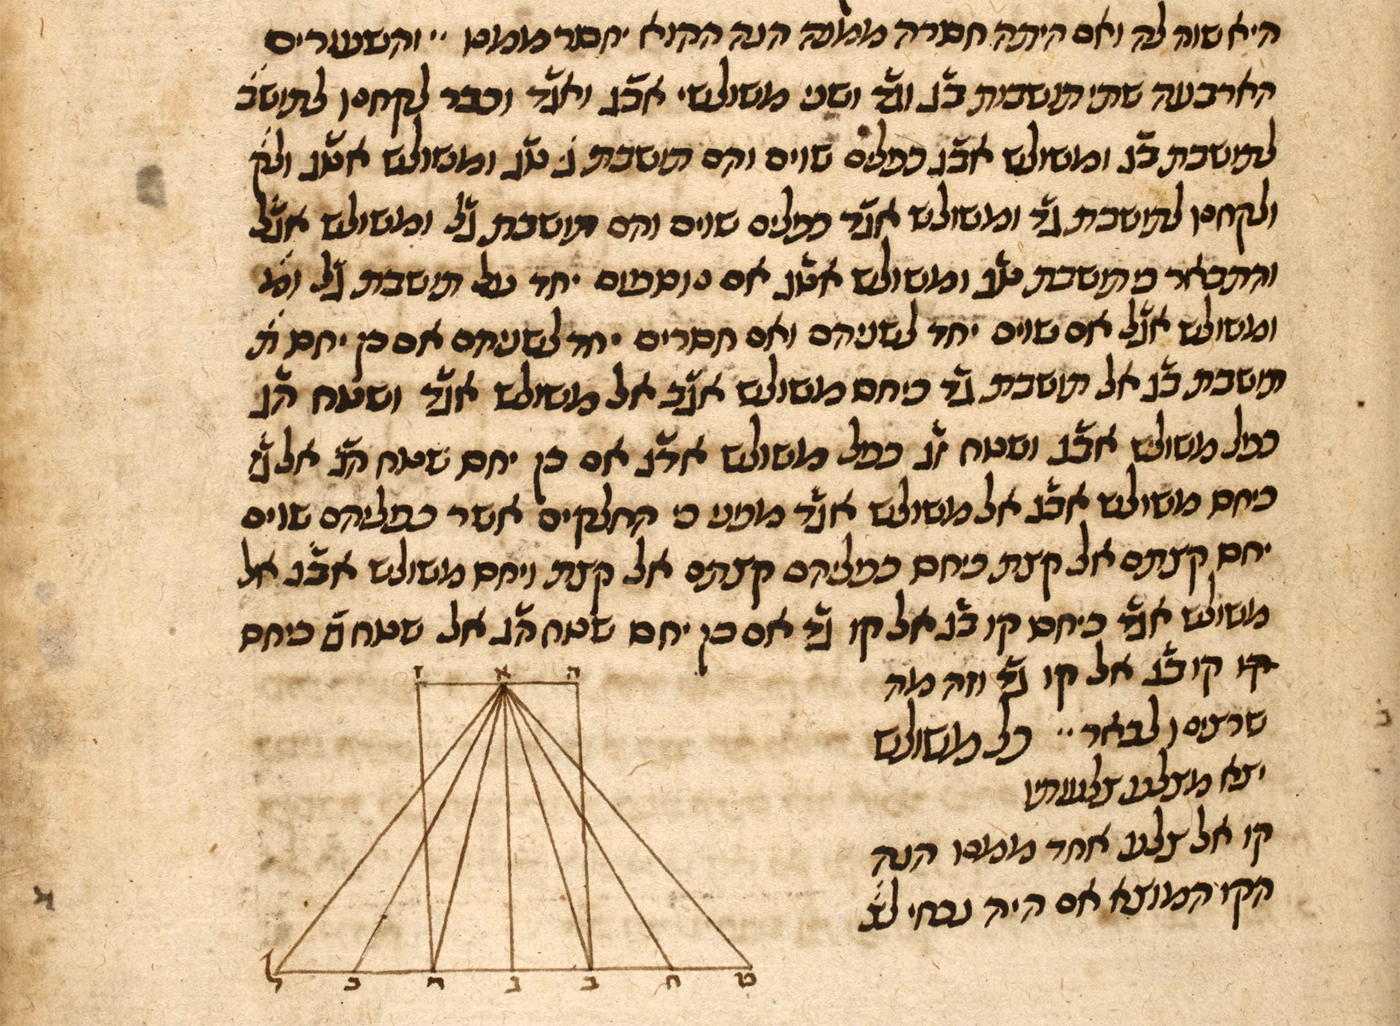 היא שוה לה ואם היתה חסרה ממנה הנה ההוא יחסר ממנו ׳׳ והשעורים
הארבעה שתי תושבות בג וגד ושני משולשי אבג ואגד וכבר לקחנו לתושב
לתושבת בג ומשולש אבג כפלים שוים והם תושבת טג ומשולש אטג ולק
ולקחנו לתושבת גד ומשולש אגד כפלים שוים והם תושבת גל ומשולש אגל
והתבאר כי תושבת טג ומשולש אטג אם נוספים יחד על תושבת גל ומ
ומשולש אגל אם שוים יחד לשניהם ואם חסרים יחד לשניהם אם כן יחס ת
תושבת בג אל תושבת גד כיחס משולש אגב אל משולש אגד ושטח הג
כפל משולש אבג ושטח זג כפל משולש אדג אם כן יחס שטח הג אל גז
כיחס משולש אבג אל משולש אגד מפני כי החלקים אשר כפליהם שוים
יחס קצתם אל קצת כיחס כפליהם קצתם אל קצת ויחס משולש אבג אל
משולש אגד כיחס קו בג אל קו גד אם כן יחס שטח הג אל שטח גז כיחס
קו בג אל קו גד וזה מה
שרצינו לבאר ׳׳ כל משולש
יצא מצלע צלעותיו
קו אל צלע אחד ממנו הנה
הקו המוצא אם היה נכחי לצ
ז א ה
ל כ ד ג ב ח ט